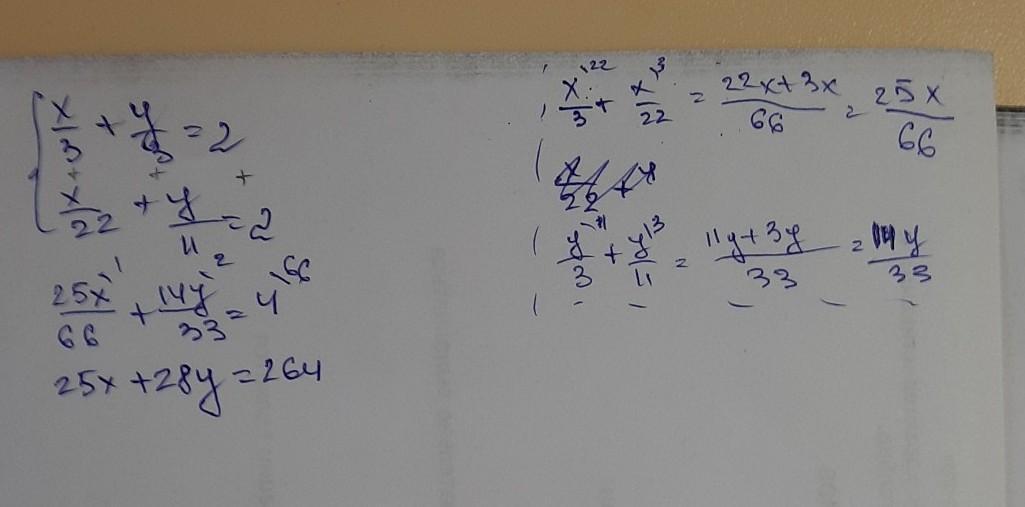 x/3 + y/3 = 2
+ + +
x/22 + y/11 = 2
25x\1/66 + 14y\2/33 = 4\66
25x + 28y = 264
x\22/3 + x\3/22 = 22x+3x/66 = 25x/66
x/22 + y
y\11/3 + y\3/11 = 11y+3y/33 = 14y/33